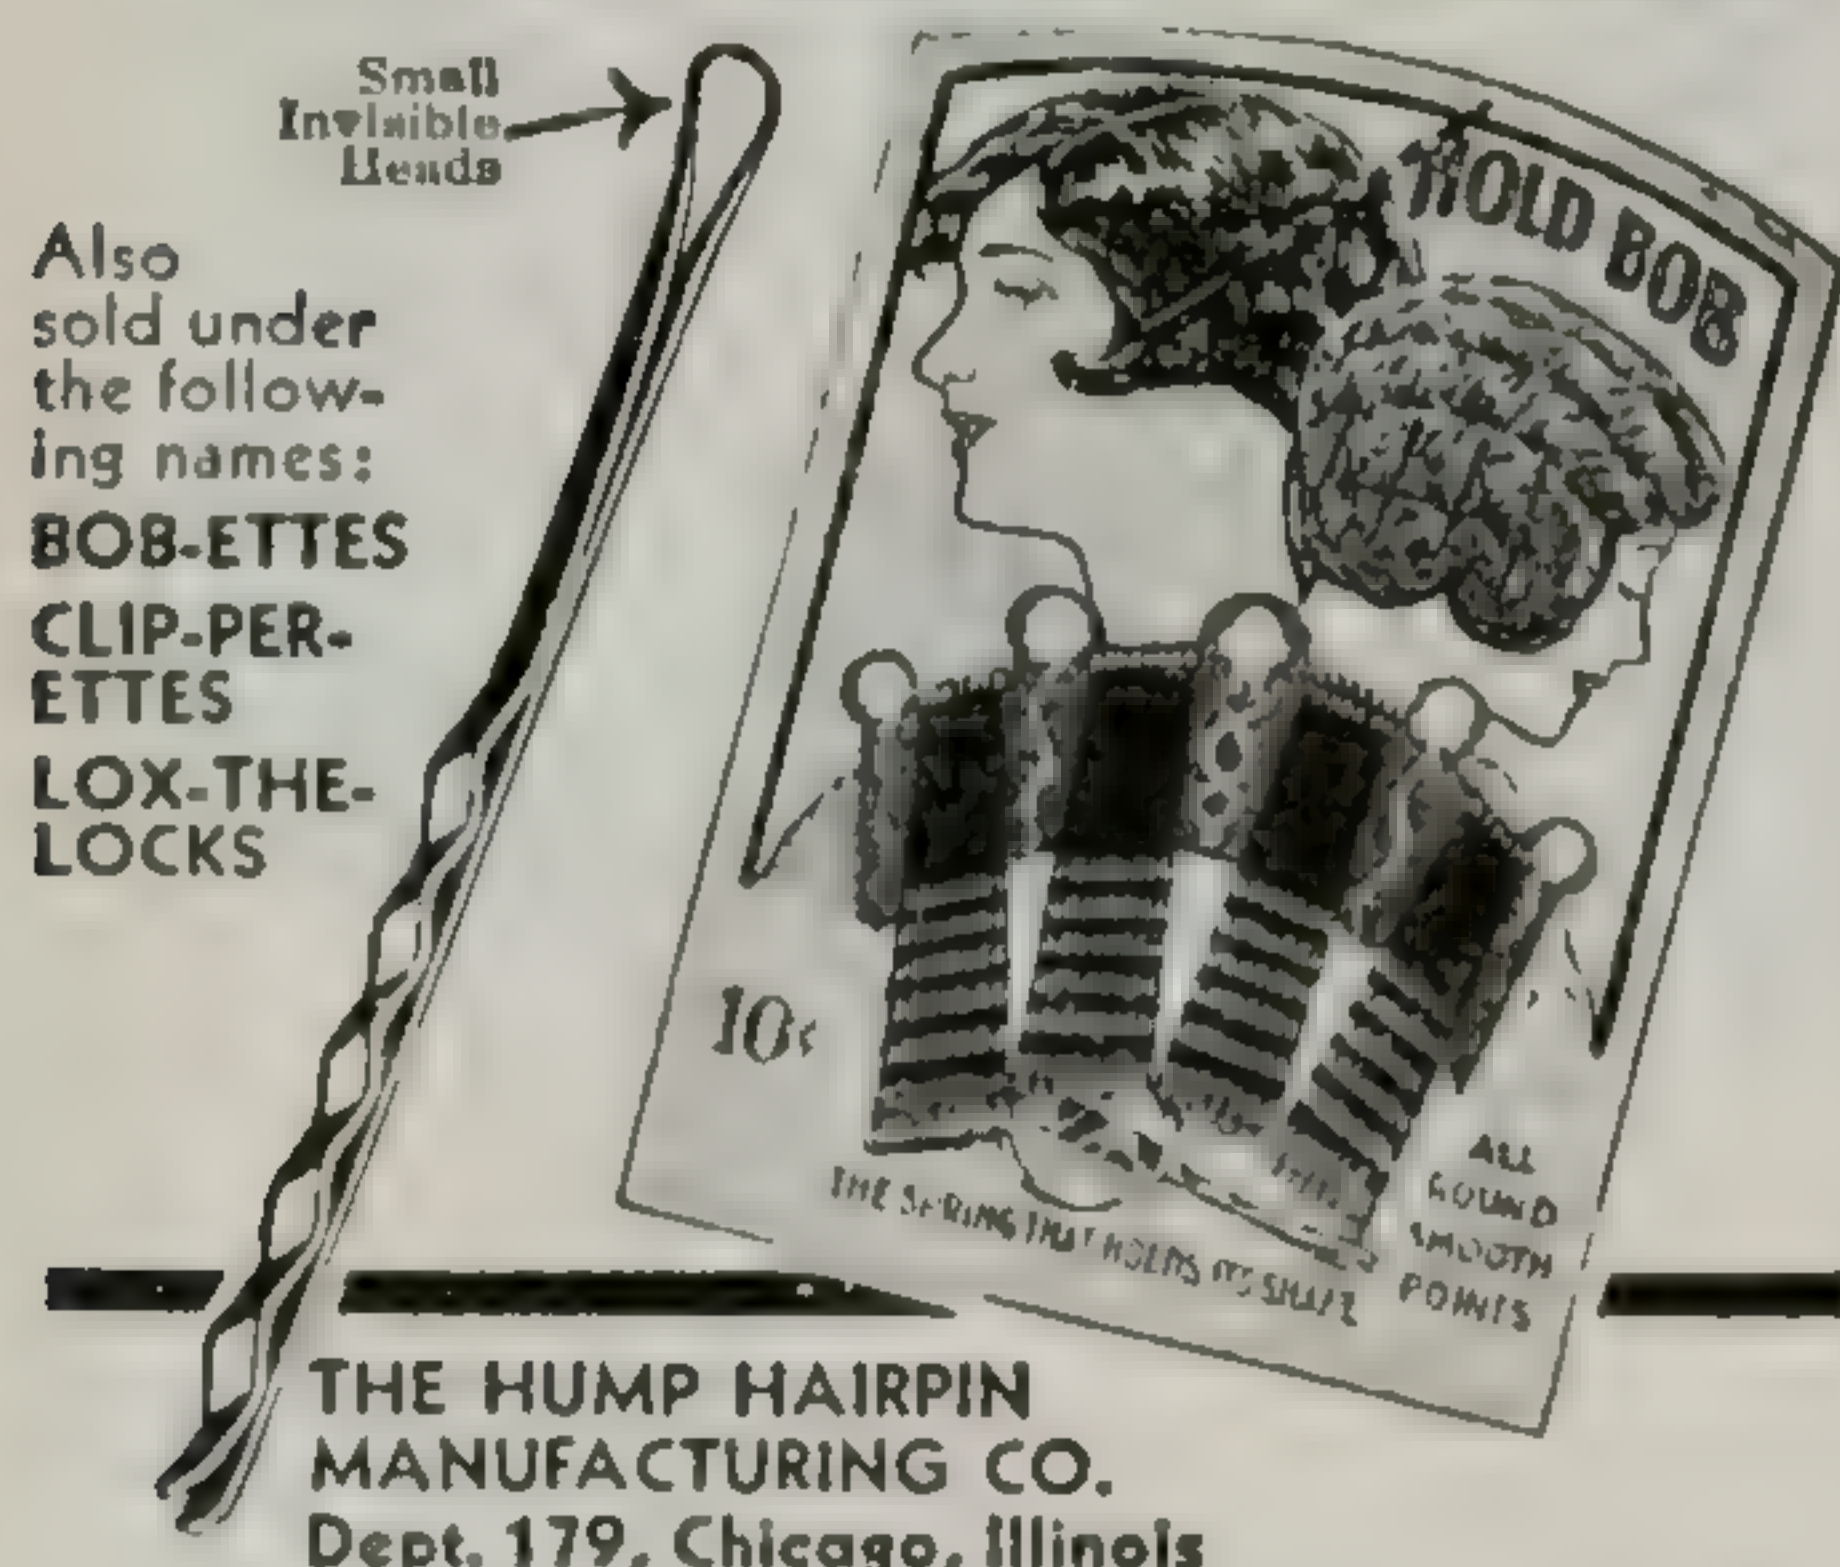 Small
Invisible
Heads
Also
sold under
the follow-
ing names:
BOB-ETTES
CLIP-PER-
ETTES
LOX-THE-
LOCKS
HOLD BOB
10¢
THE SPRING THAT HOLDS ITS SHAPE
ALL
ROUND
SMOOTH
POINTS
THE HUMP HAIRPIN
MANUFACTURING CO.
Dept. 179, Chicago, Illinois